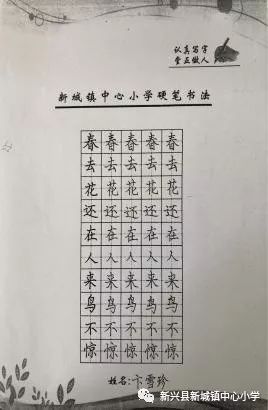 认真写字
堂正做人
新城镇中心小学硬笔书法
春春春春春
去去去去去
花花花花花
还还还还还
在在在在在
人人人人人
来来来来来
鸟鸟鸟鸟鸟
不不不不不
惊惊惊惊惊
姓名:卞雪珍
新兴县新城镇中心小学